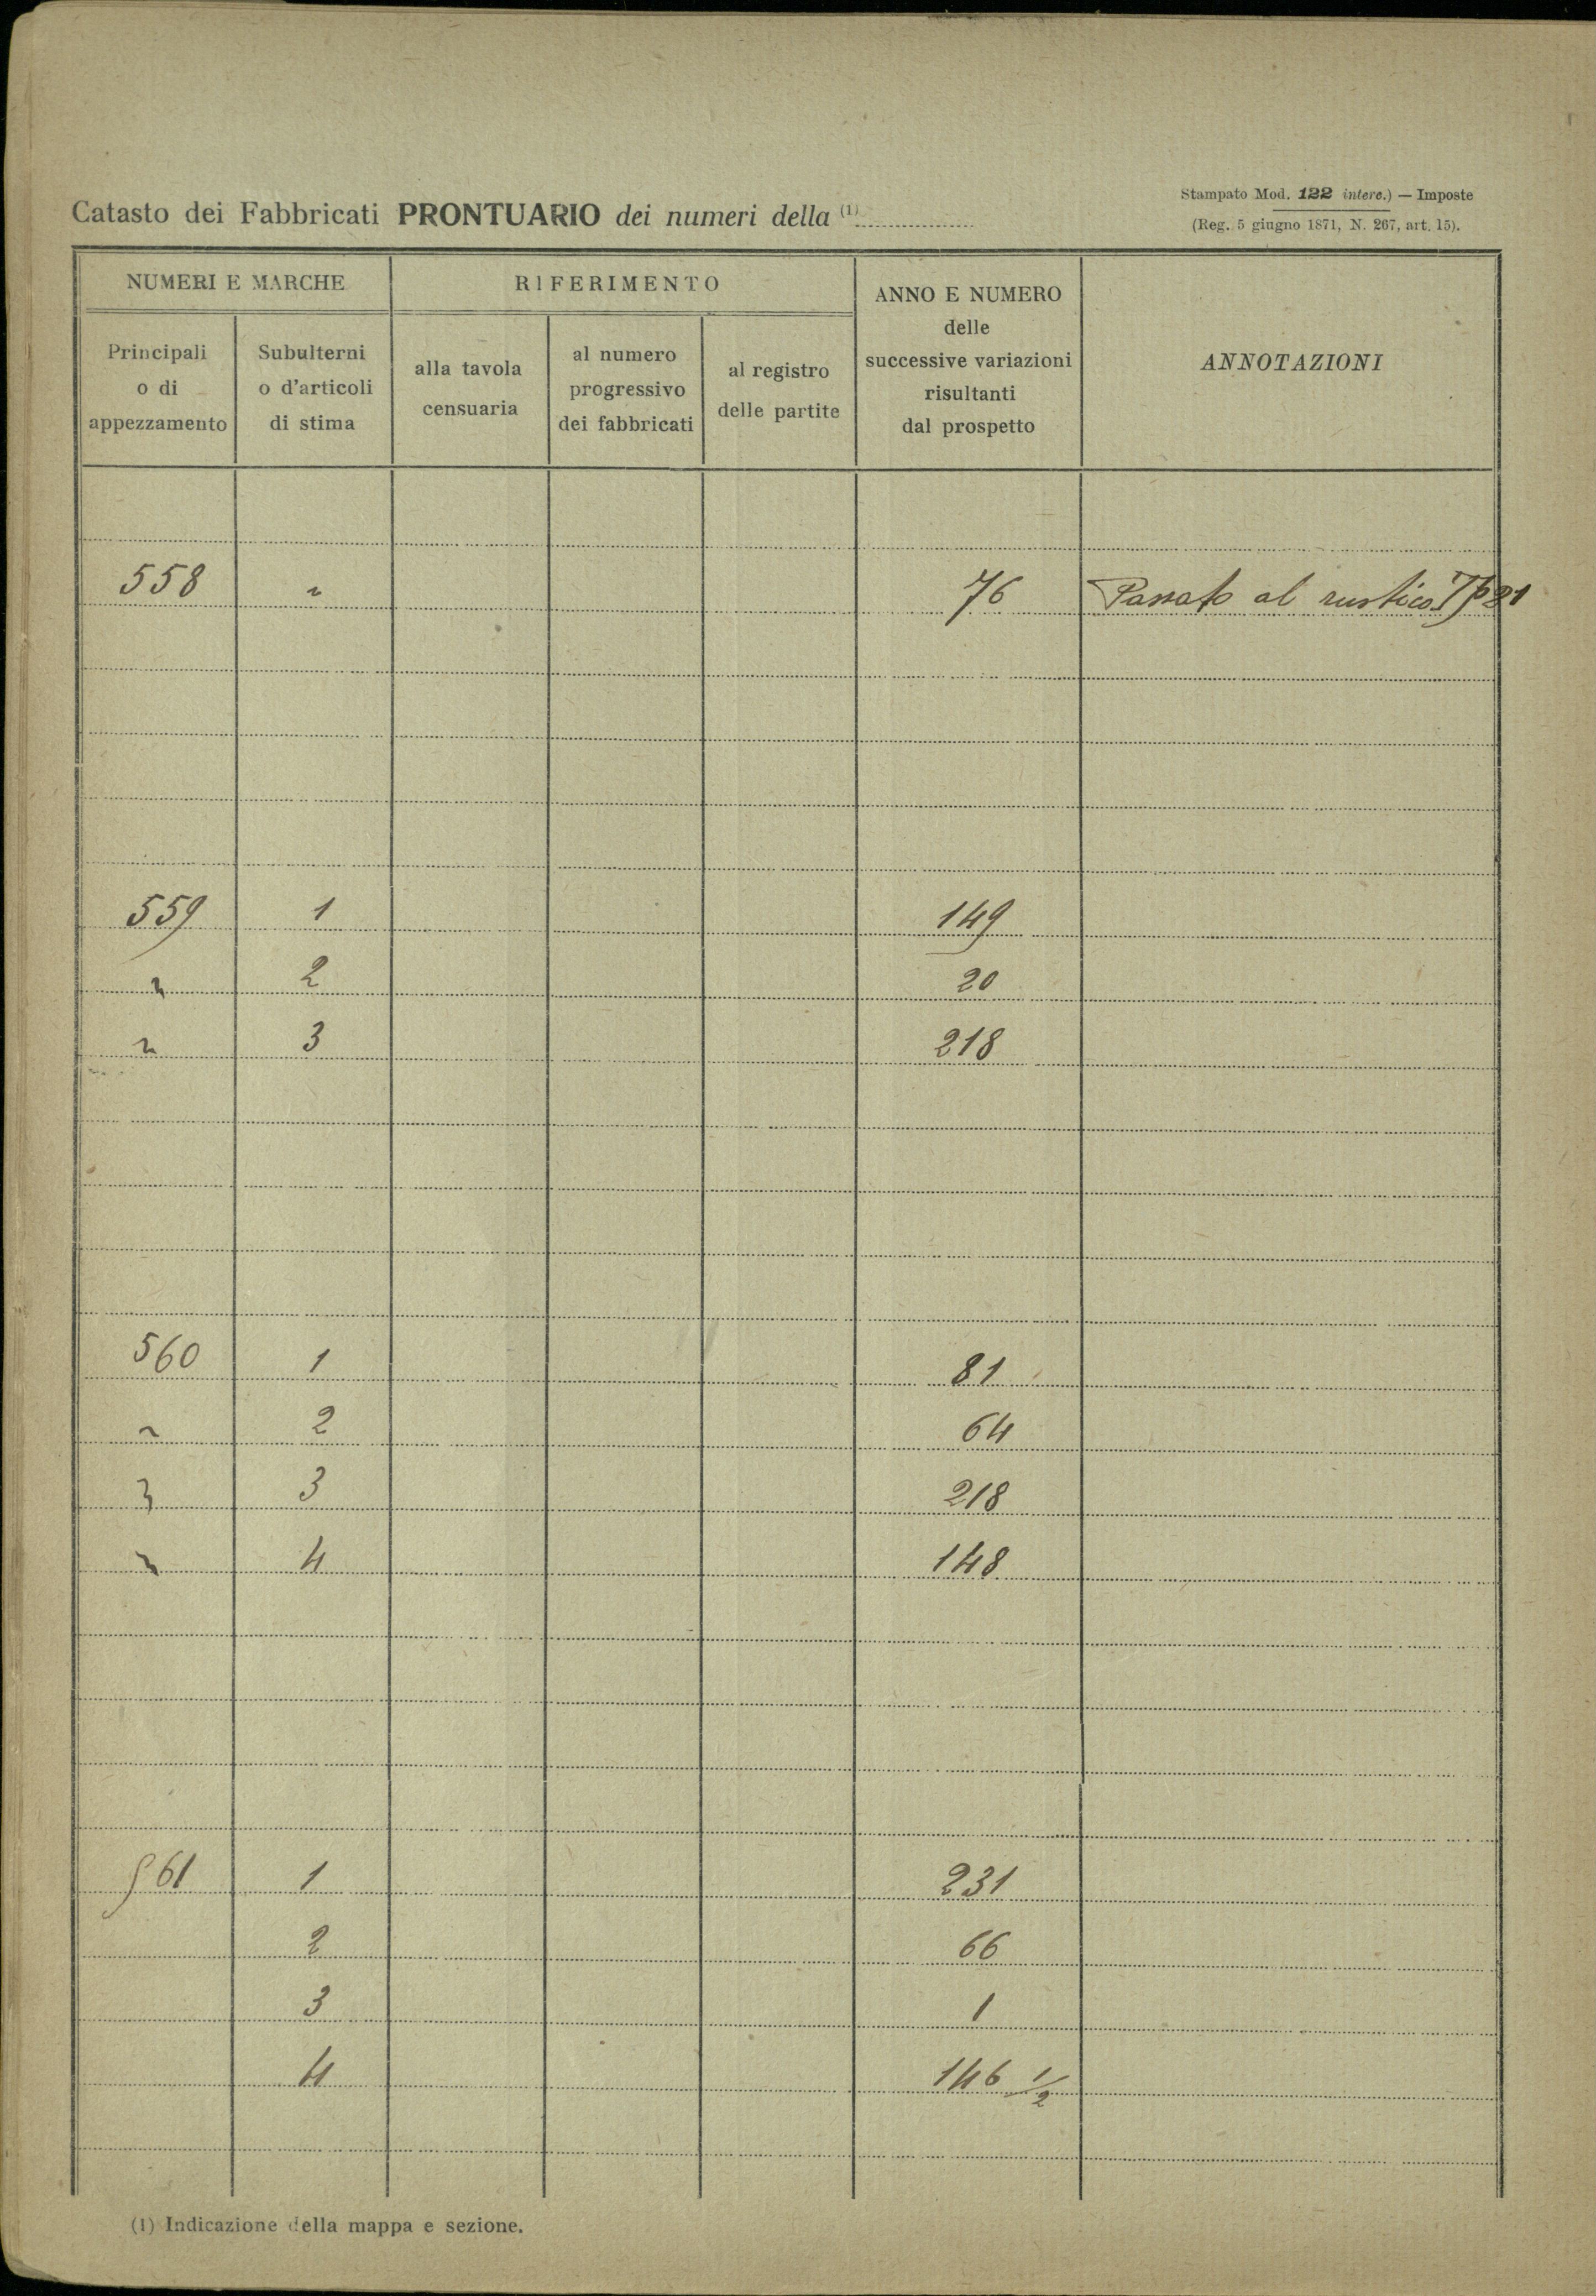 Stampato Mod. 122 interc.) — Imposte
(Reg. 5 giugno 1871, N. 267, art. 15).
Catasto dei Fabbricati PRONTUARIO dei numeri della (1)
NUMERI E MARCHE
RIFERIMENTO
ANNO E NUMERO
delle
successive variazioni
risultanti
dal prospetto
ANNOTAZIONI
Principali
o di
appezzamento
Subulterni
o d'articoli
di stima
alla tavola
censuaria
al numero
progressivo
dei fabbricati
al registro
delle partite
558 " 76 Passato al rustico
559 1 149
" 2 20
" 3 218
560 1 81
" 2 64
" 3 218
" 4 148
561 1 231
2 66
3 1
4 146 1/2
(1) Indicazione della mappa e sezione.